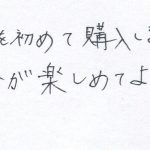 を初めて購入し
が楽しめてよ